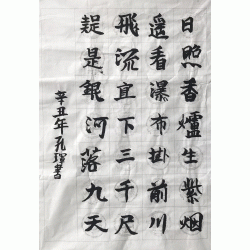 日照香爐生紫烟
遥看瀑布掛前川
飛流直下三千尺
疑是銀河落九天
辛丑年孔書